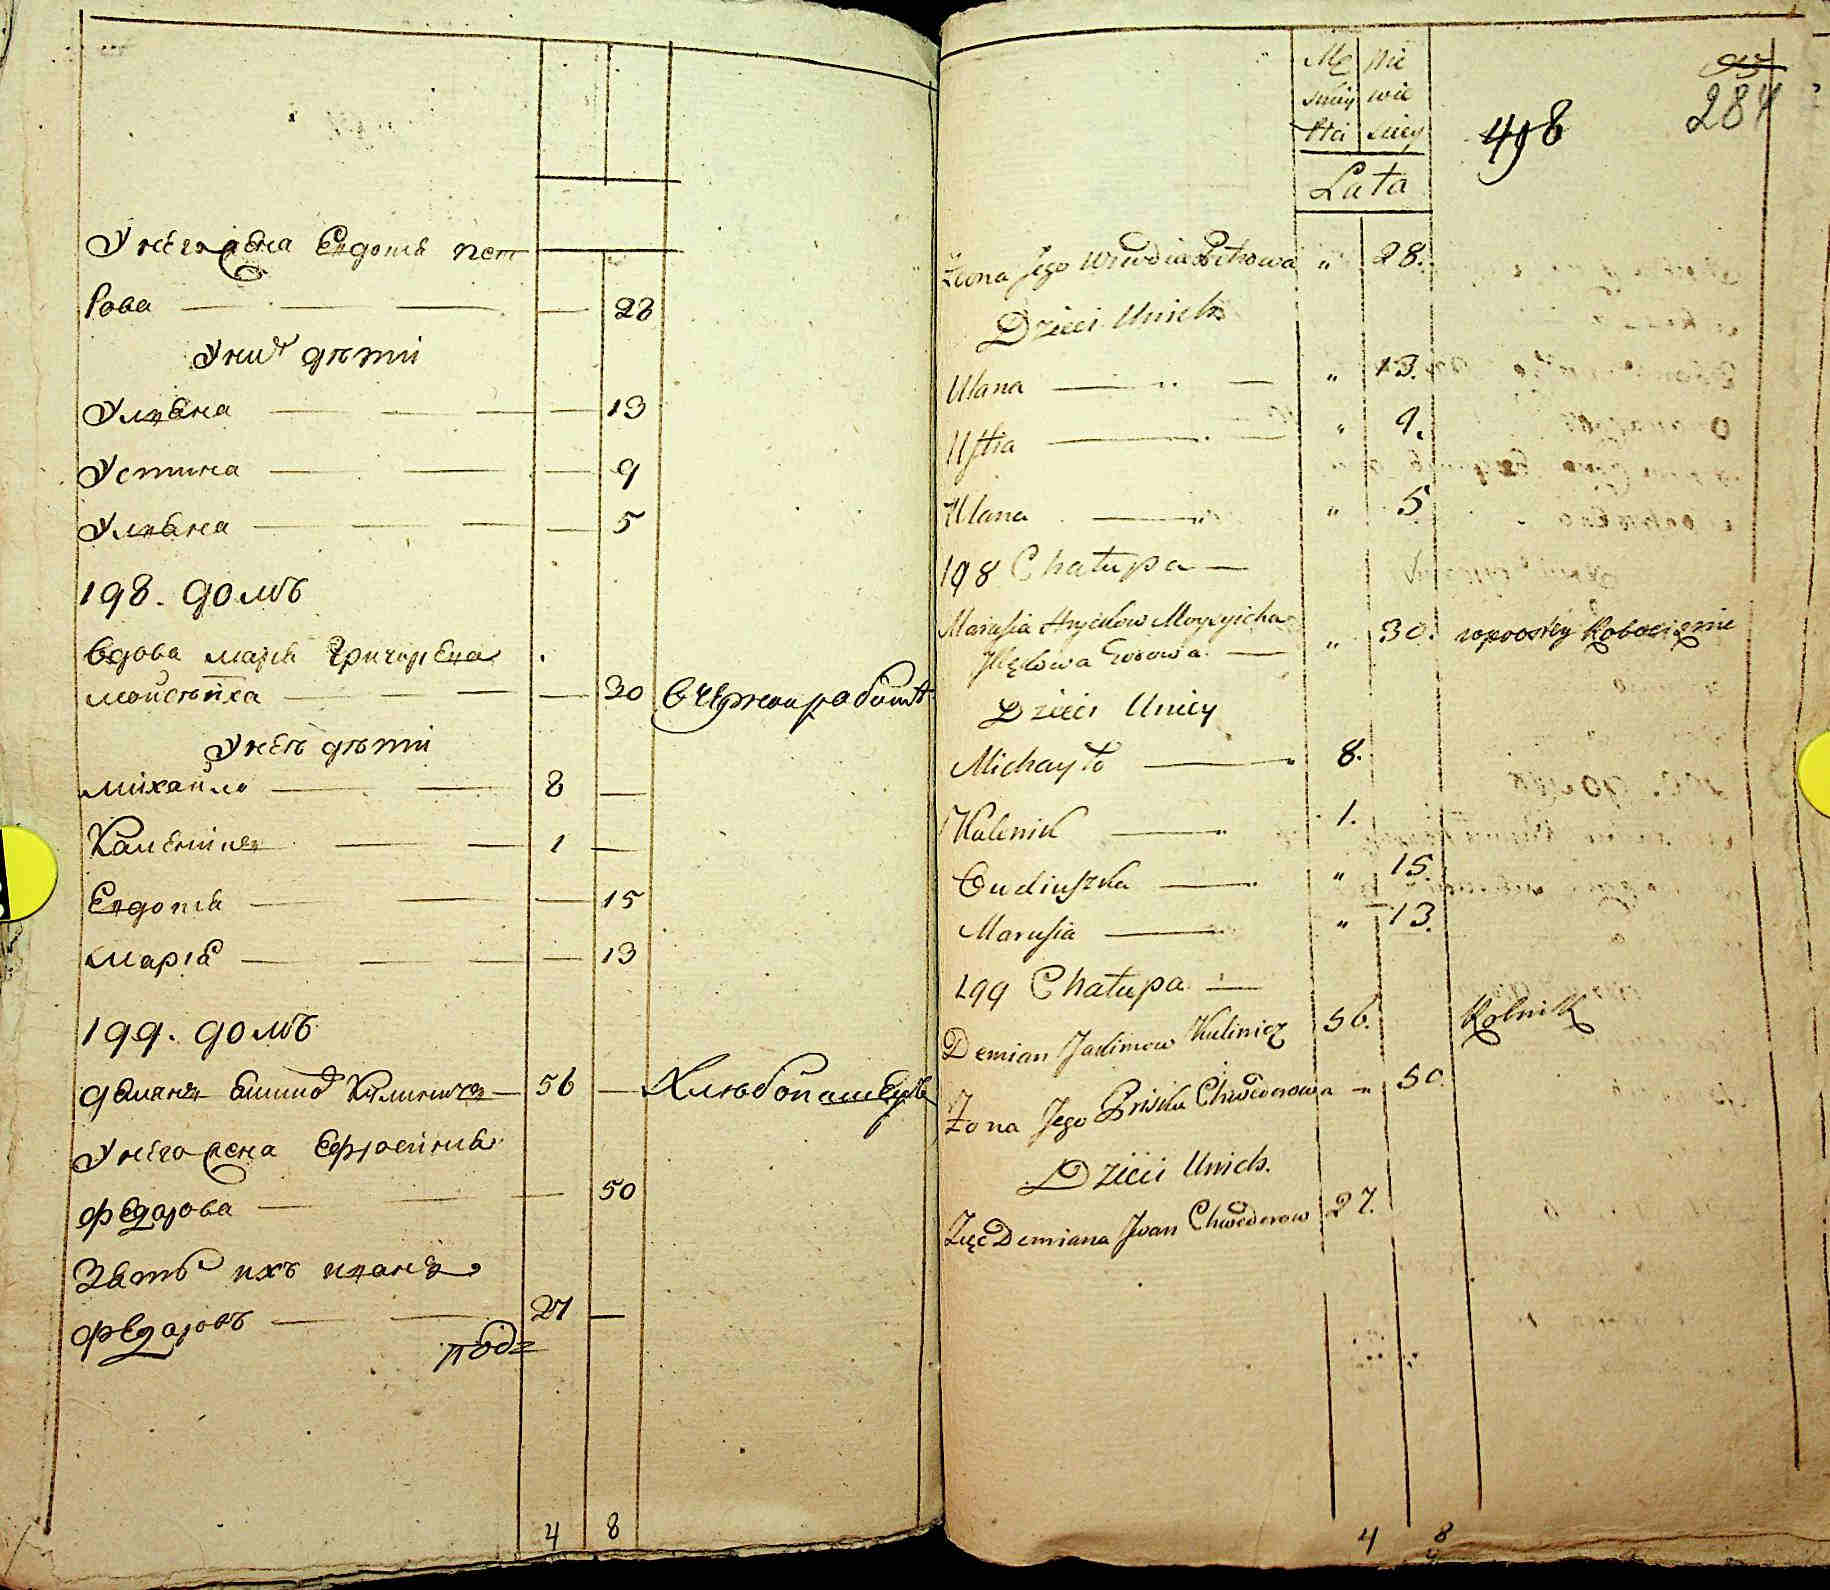 У него жена Евдотя Пет
рова — — — — 28
У них дѣти
Ульяна — — — — 13
Устина — — — — 9
Ульяна — — — — 5
198. домъ
Вдова Маря Григорьева
Мойсѣиха — — — — 30 в чужой работѣ
У неѣ дѣти
Михайло — — 8 —
Калениkъ — — 1 —
Евдотя — — — 15
Марія — — — — 13
199. домъ
Демянъ Калиничъ — 56 — Хлѣбопашецъ
У него жена Ефросиния
Федорова — — — 50
Зять ихъ Иванъ
Федоровъ — — 27 —
подз
4 8
Mę Nie
skiey wie
Płci sciey
Lata
498
284
Żona Jego Petrowa " 28.
Dzieci Unich
Ulana — — " 13.
Ustia — — " 9.
Ulana — " 5
198 Chałupa —
Marusia Hryćkow Moysyicha
Wdowa — " 30.
Dzieci Unicy
Michayło — 8.
Kalenik — 1.
Eudiuszka — " 15
Marusia — " 13.
199 Chałupa —
Demian Kalinicz 56. Rolnik
Żona Jego Priska Chwedorowa " 50.
Dzieci Unich.
Zięć Demiana Iwan Chwedorow 27.
4 8